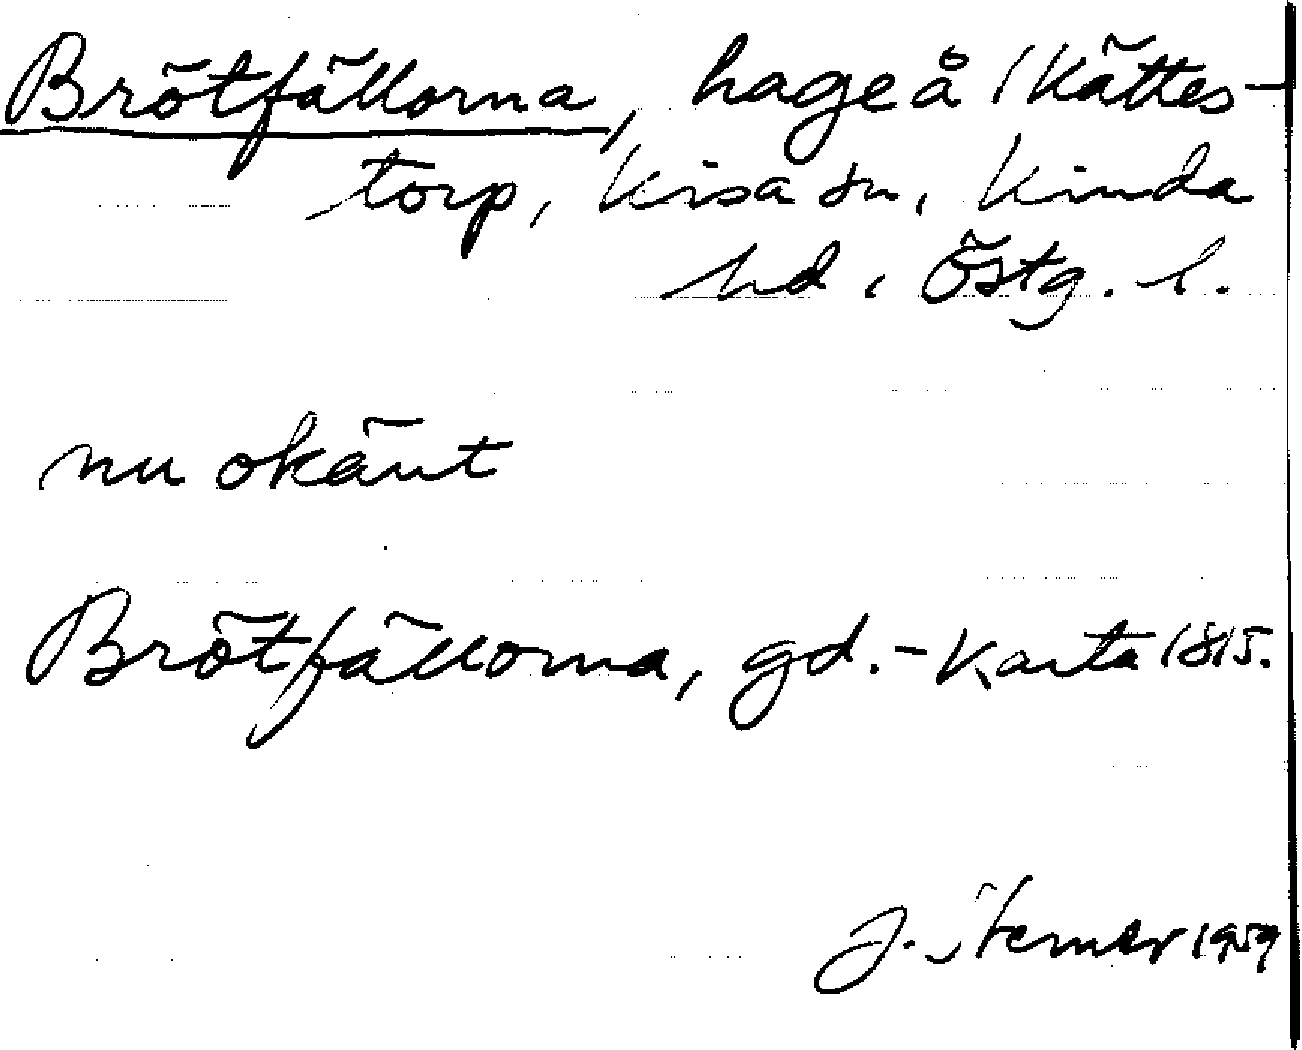 Brötfällorna, hage å Kättes-
torp, Kisa sn, Kinda
hd, Östg. l.
nu okänt
Brötfällorna, gd. - Karta 1815.
J. Sterner 1959